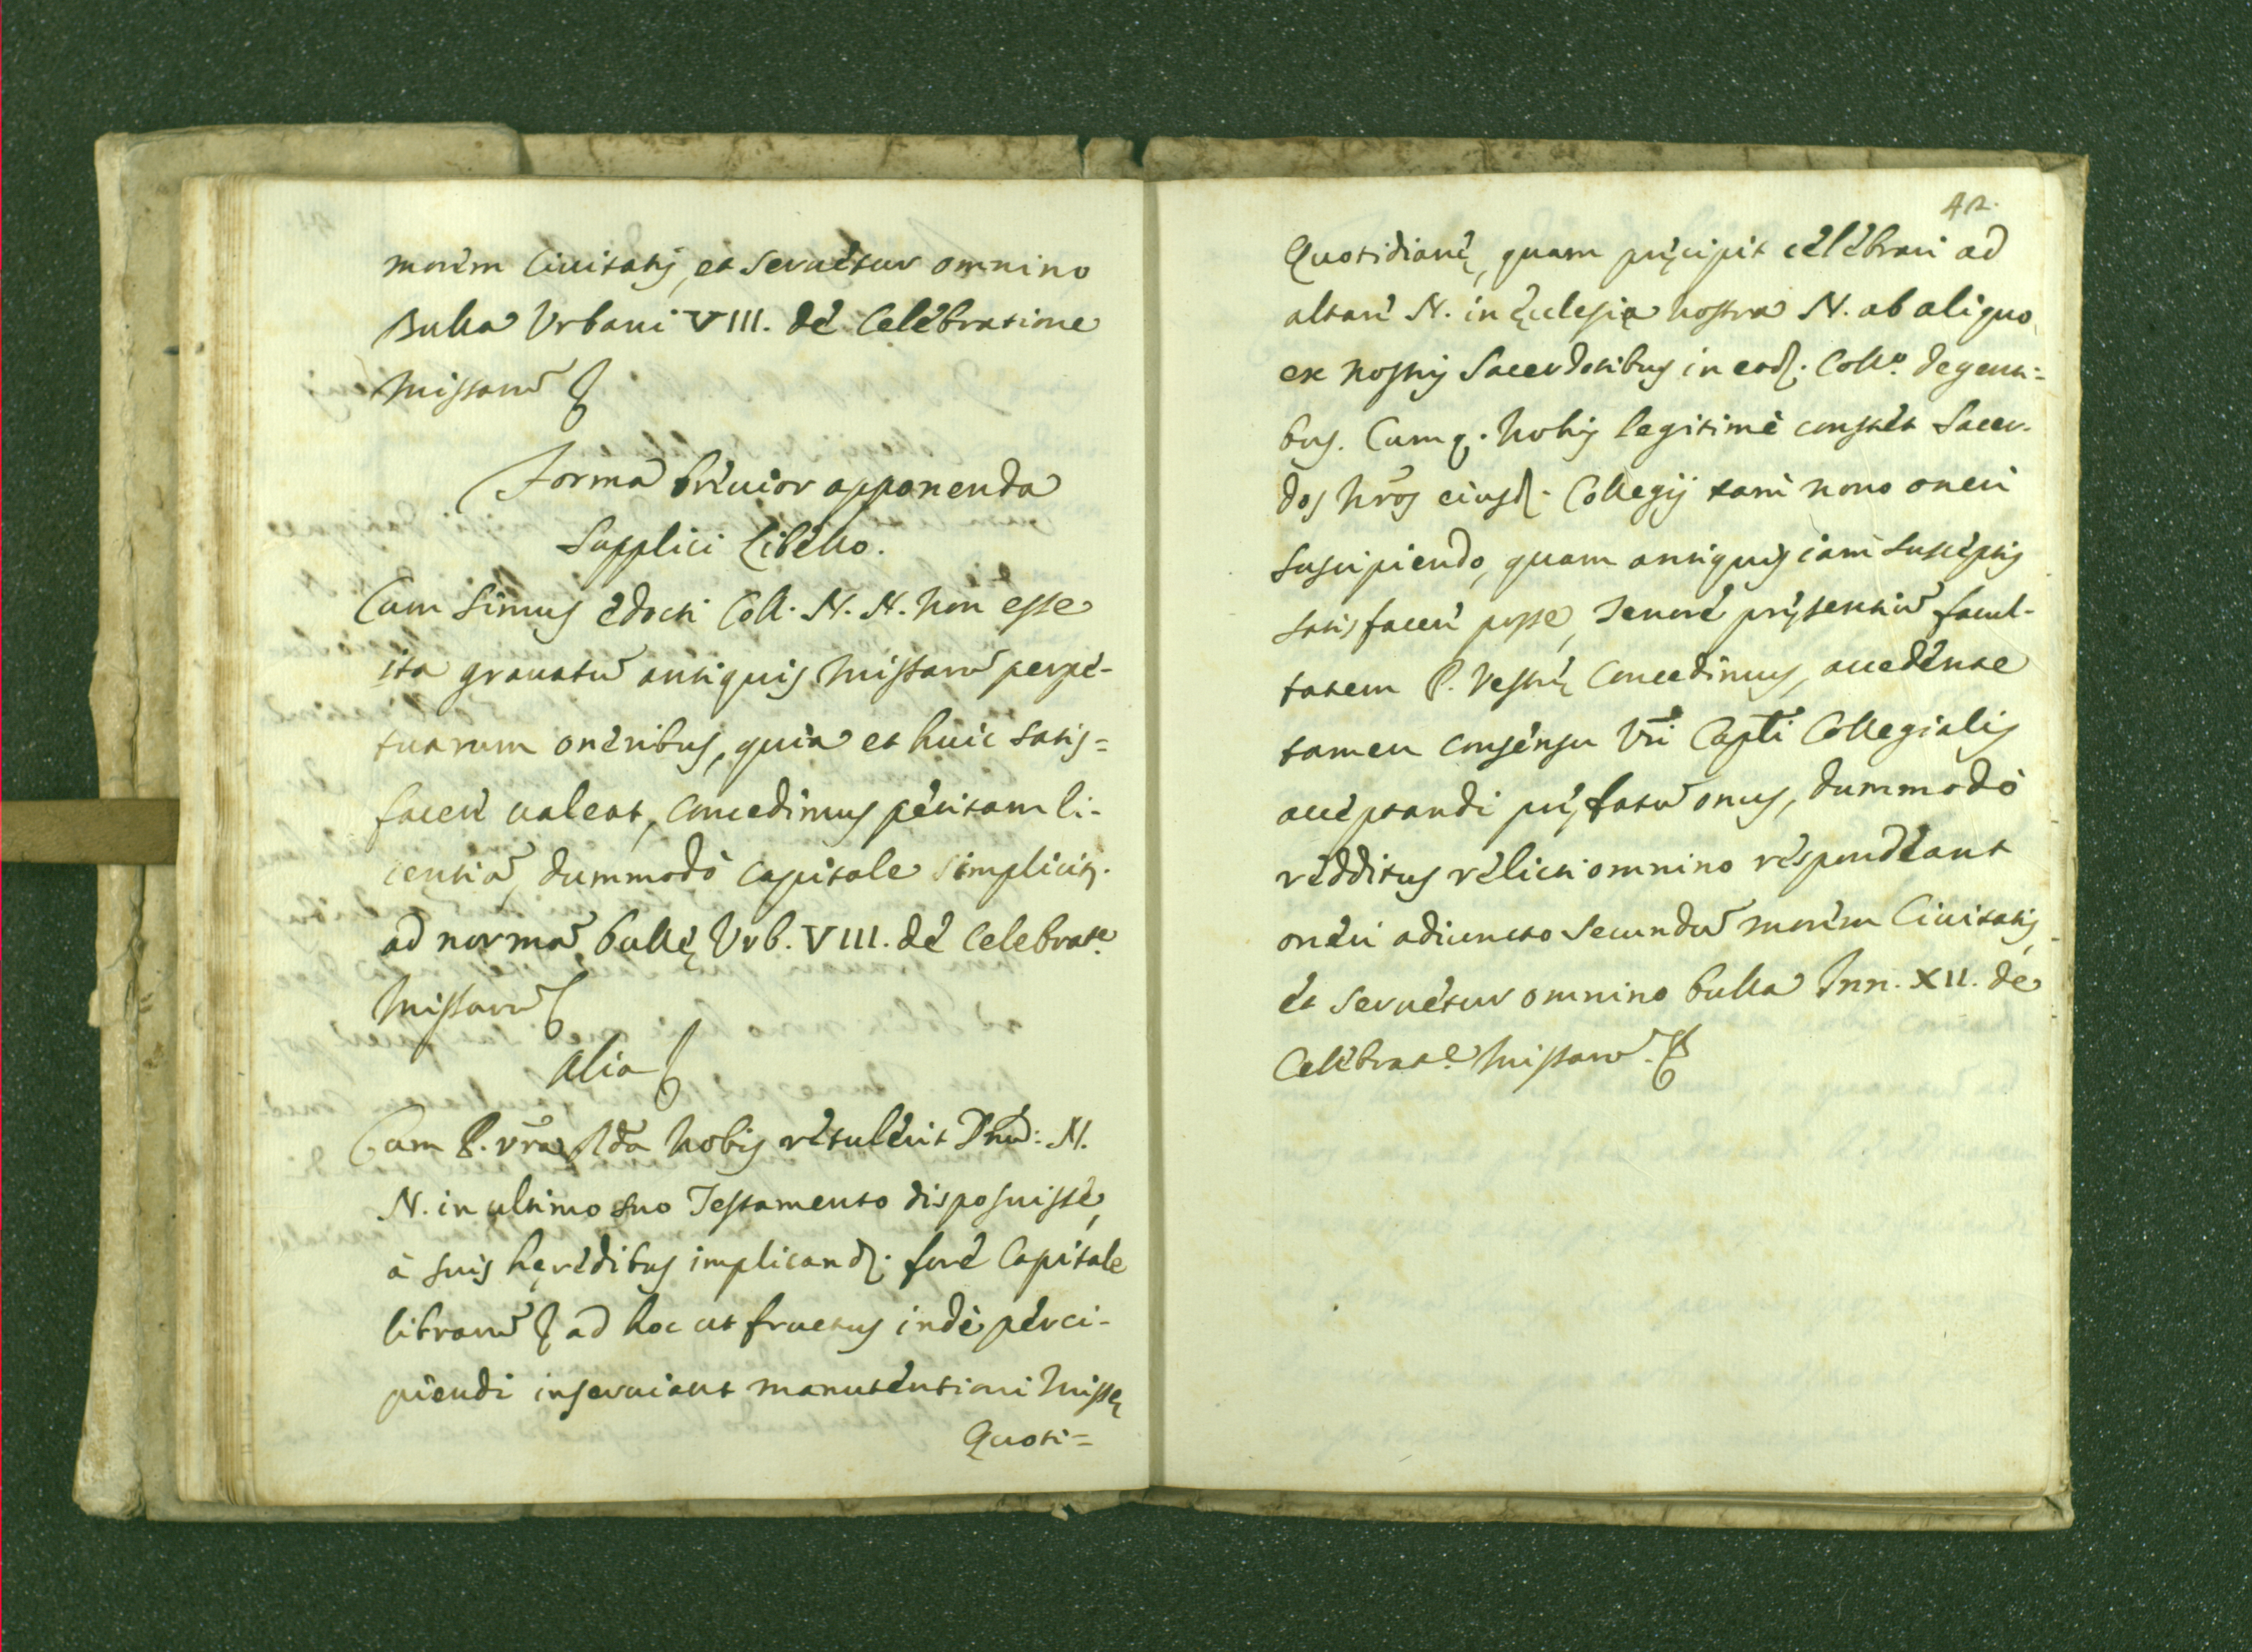 morem Ciuitatis, et seruetur omnino
Bulla Vrbani VIII. de Celebratione
Missarũ &
Forma breuior apponenda
Supplici Libello.
Cum simus edocti Coll. N. N. non esse
ita grauatũ antiquis Missarũ perpe-
tuarum oneribus, quia et huic satis=
facere ualeat, concedimus petitam li-
centiã, dummodò capitale simplicitr.
ad normã Bullę Vrb. VIII. de Celebrate.
Missarũ &
Alia &
Cum P. vrã Rda nobis retulerit Dnũ: N.
N. in ultimo suo Testamento disposuisse,
à suis hęredibus implicandũ fore Capitale
librarũ & ad hoc ut fructus indè perci-
piendi inseruiant manutentioni Missę
Quoti=
42.
Quotidianę, quam pręcipit celebrari ad
altare N. in Ęcclesia nostra N. ab aliquo
ex nostris Sacerdotibus in eod. Collo. degenti=
bus. Cumq. nobis legitimè constet Sacer-
dos nrõs eiusd. Collegij tam nouo oneri
suscipiendo, quam antiquis iam susceptis
satisfacere posse, Tenore pręsentiũ facul-
tatem P. Vestrę concedimus, accedente
tamen consensu Vri Capli Collegialis
acceptandi pręfatũ onus, dummodò
redditus relicti omnino respondeant
oneri adiuncto secundũ morem Ciuitatis,
et seruetur omnino bulla Inn. XII. de
Celebrate. Missarũ. &